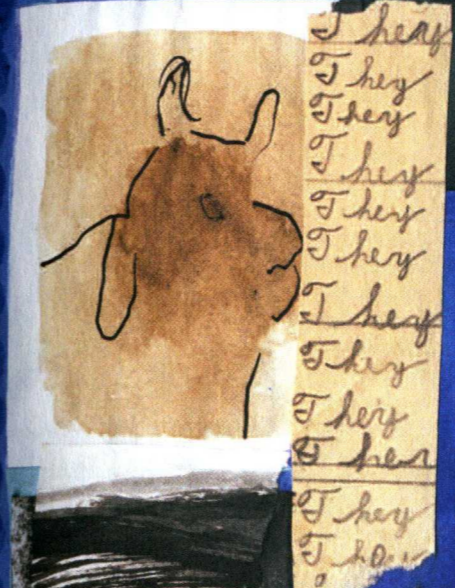 They
They
They
They
They
They
They
They
They
Then
They